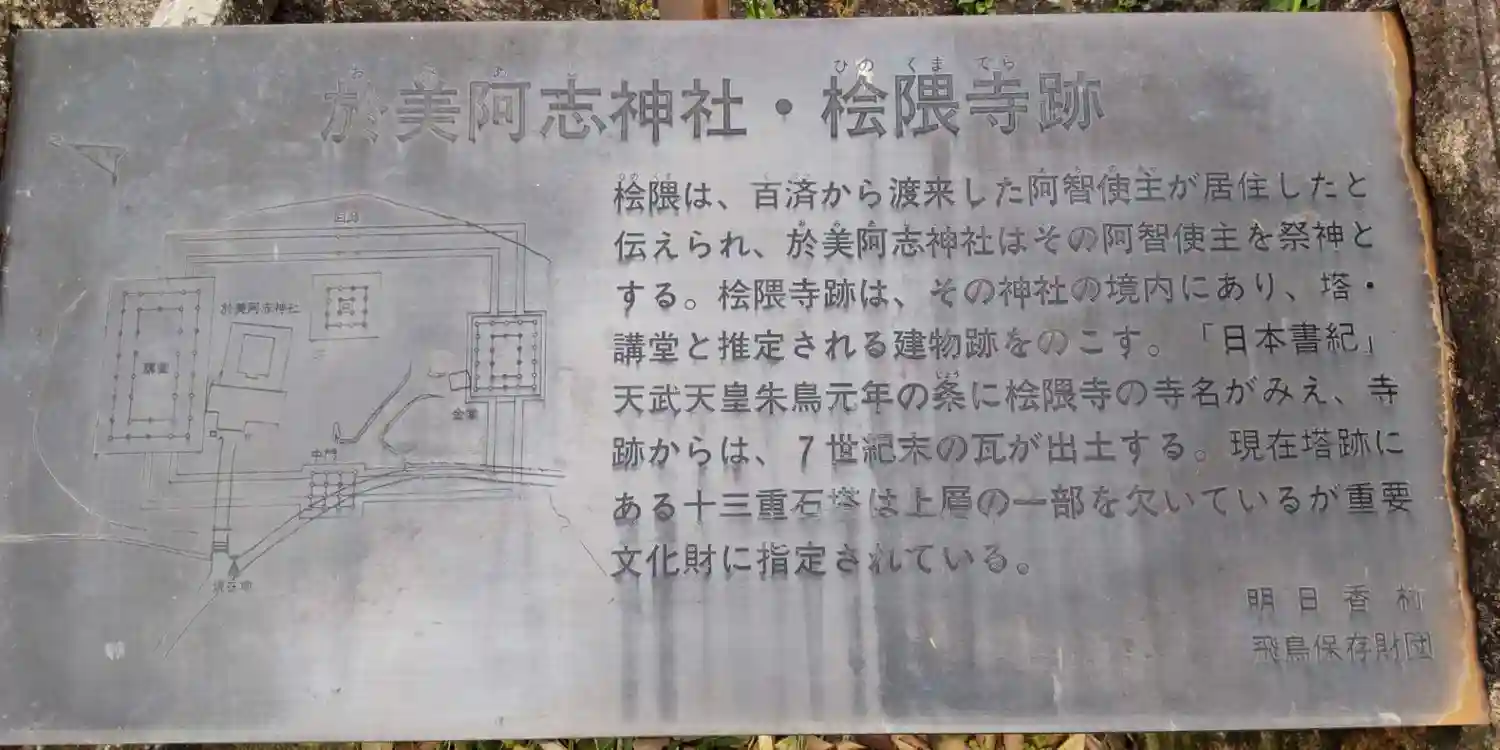 於美阿志神社・桧隈寺跡
ひのくまてら
桧隈は、百済から渡来した阿智使主が居住したと
伝えられ、於美阿志神社はその阿智使主を祭神と
する。桧隈寺跡は、その神社の境内にあり、塔・
講堂と推定される建物跡をのこす。「日本書紀」
天武天皇朱鳥元年の条に桧隈寺の寺名がみえ、寺
じょう
跡からは、7世紀末の瓦が出土する。現在塔跡に
ある十三重石塔は上層の一部を欠いているが重要
文化財に指定されている。
明日香村
飛鳥保存財団
回廊
於美阿志神社
講堂
金堂
中門
現在地